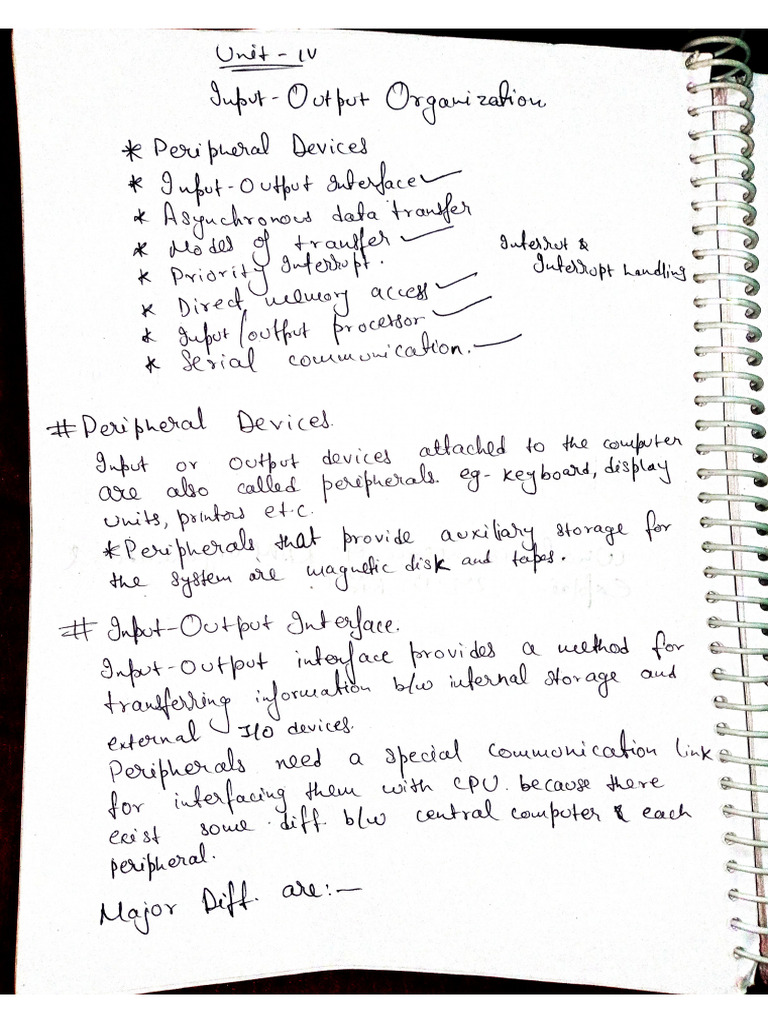 Unit - IV
Input-Output Organization
* Peripheral Devices
* Input-Output Interface
* Asynchronous data transfer
* Modes of transfer
* Priority Interrupt.
Interrut &
Interrupt handling
* Direct memory access
* Input/output processor
* Serial communication.
# Peripheral Devices.
Input or output devices attached to the computer
are also called peripherals. eg- keyboard, display
units, printers etc.
* Peripherals that provide auxiliary storage for
the system are magnetic disk and tapes.
# Input-Output Interface.
Input-output interface provides a method for
transferring information b/w internal storage and
external I/O devices.
Peripherals need a special communication link
for interfacing them with CPU. because there
exist some diff. b/w central computer & each
peripheral.
Major Diff. are:—